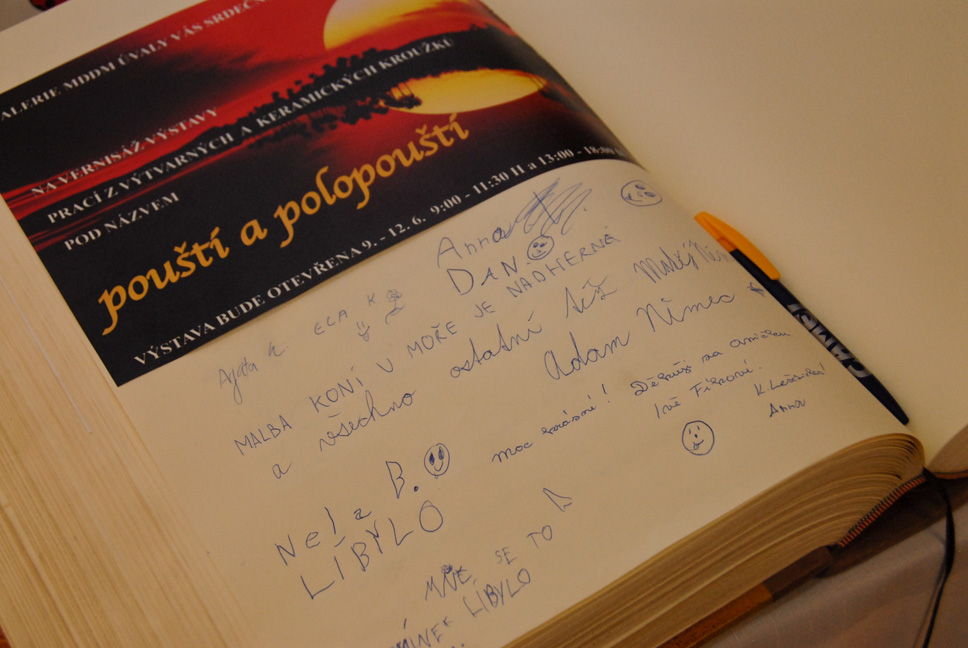 ALERIE MDDM ÚVALY VÁS SRDEČN
NA VERNISÁŽ VÝSTAVY
PRACÍ Z VÝTVARNÝCH A KERAMICKÝCH KROUŽKŮ
POD NÁZVEM
pouští a polopouští
VÝSTAVA BUDE OTEVŘENA 9. - 12. 6. 9:00 - 11:30 H a 13:00 - 18:00
Anna
DAN
ELA K
MALBA KONÍ V MOŘE JE NÁDHERNÁ
a všechno ostatní též
Adam Němec
moc krásné! Děkuji za
Ivě
Anna
Nela B.
LÍBYLO
MNĚ SE TO
LÍBYLO
CAMEL